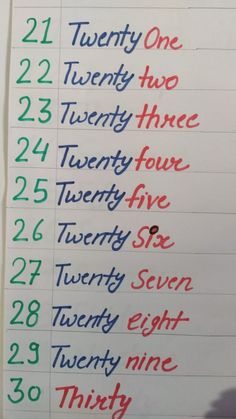 21 Twenty One
22 Twenty two
23 Twenty three
24 Twenty four
25 Twenty five
26 Twenty Six
27 Twenty Seven
28 Twenty eight
29 Twenty nine
30 Thirty